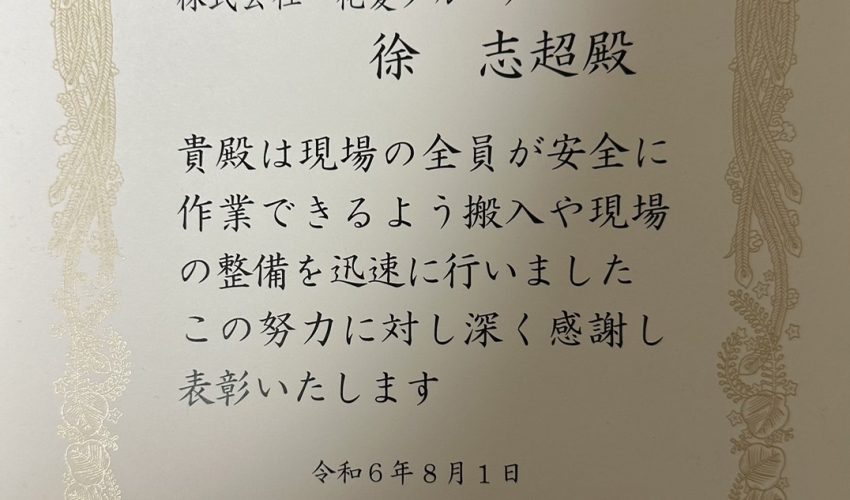 徐　志超殿
貴殿は現場の全員が安全に
作業できるよう搬入や現場
の整備を迅速に行いました
この努力に対し深く感謝し
表彰いたします
令和６年８月１日